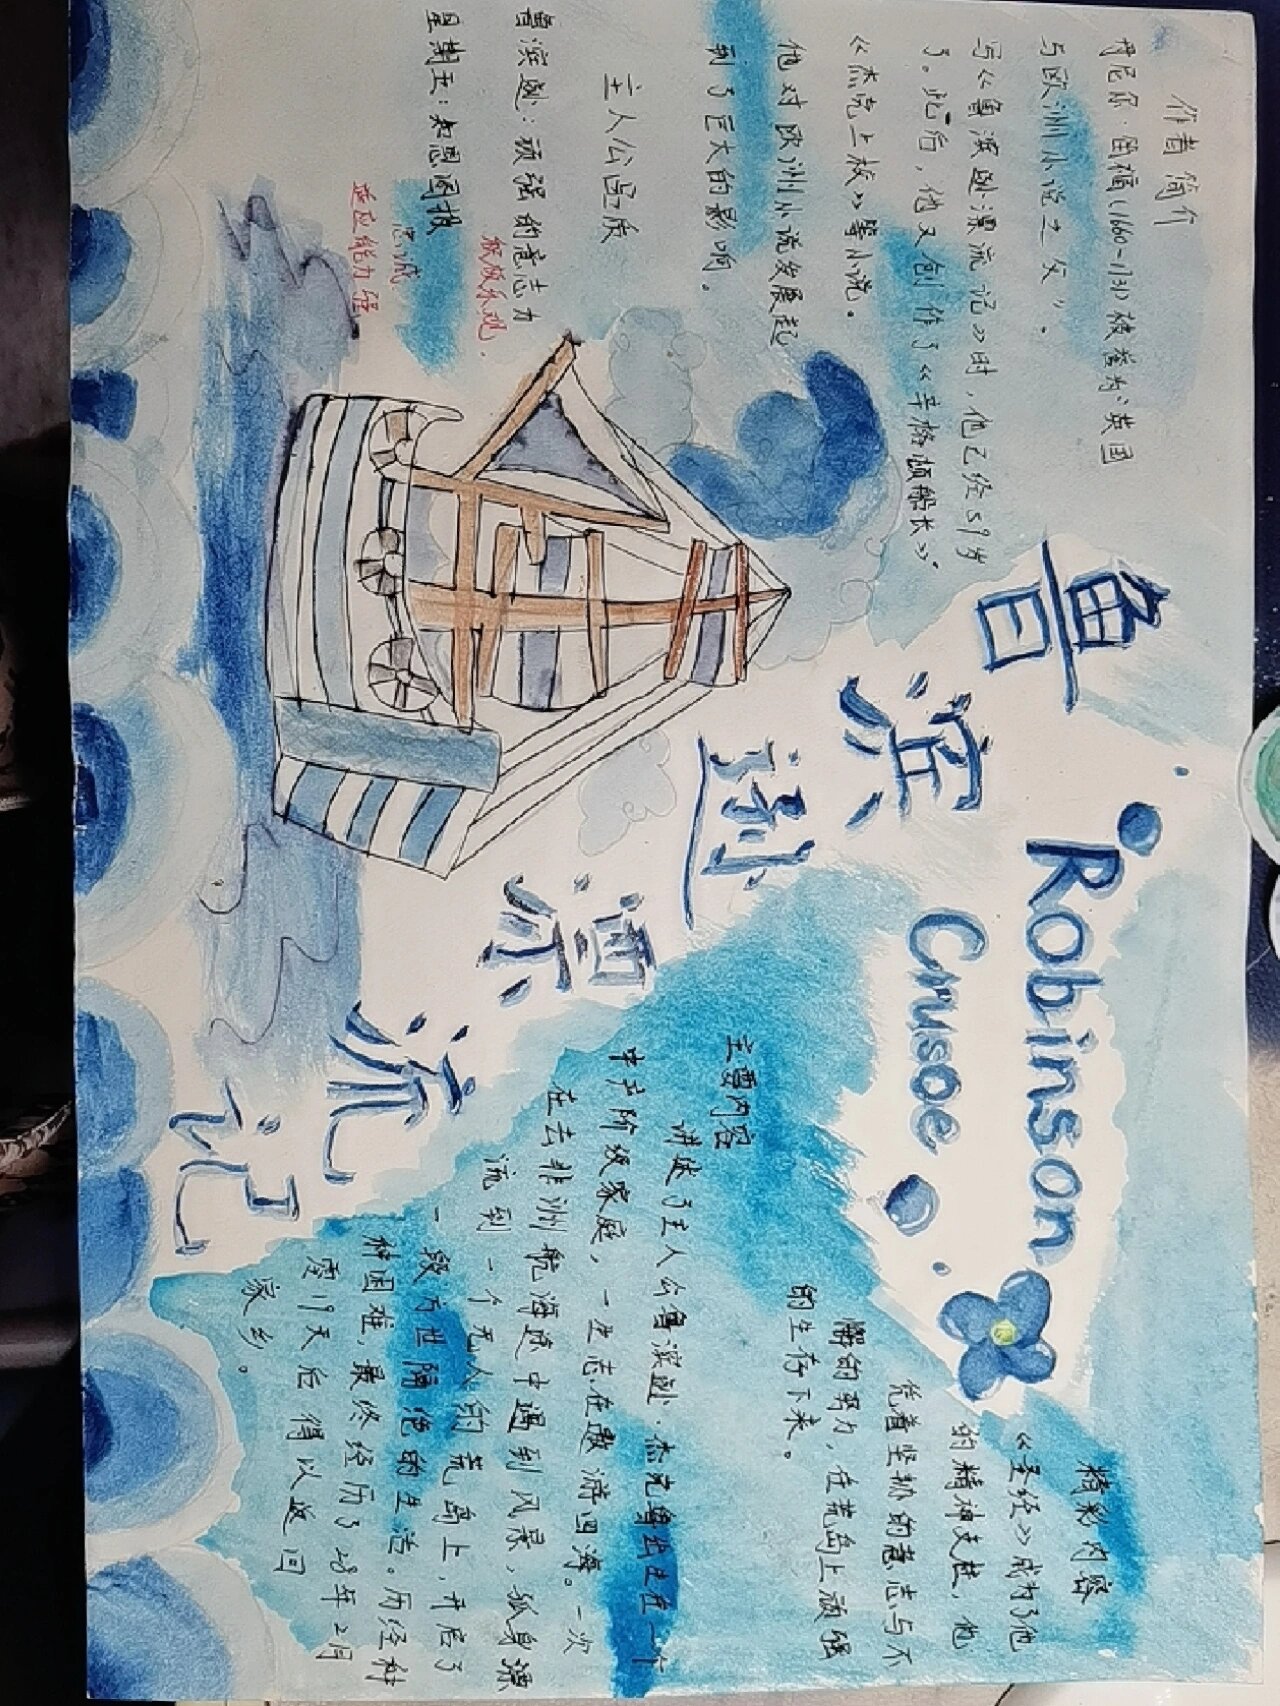 鲁滨逊漂流记
Robinson
Crusoe
作者简介
丹尼尔·笛福(1660-1731)被誉为“英国
与欧洲小说之父”。
写《鲁滨逊漂流记》时，他已经59岁
了。此后，他又创作了《辛格顿船长》
《杰克上校》等小说。
他对欧洲小说发展起
到了巨大的影响。
主人公品质
鲁滨逊：顽强的意志力
积极乐观.
星期五：知恩图报
忠诚.
适应能力强
精彩内容
《圣经》成为了他
的精神支柱，他
凭着坚韧的意志与不
懈的努力，在荒岛上顽强
的生存下来。
主要内容
讲述了主人公鲁滨逊·杰克出生在一个
中产阶级家庭，一生志在遨游四海。一次
在去非洲航海途中遇到风暴，孤身漂
流到一个无人的荒岛上，开启了
一段与世隔绝的生活。历经种
种困难，最终经历了28年2月
零19天后得以返回
家乡。